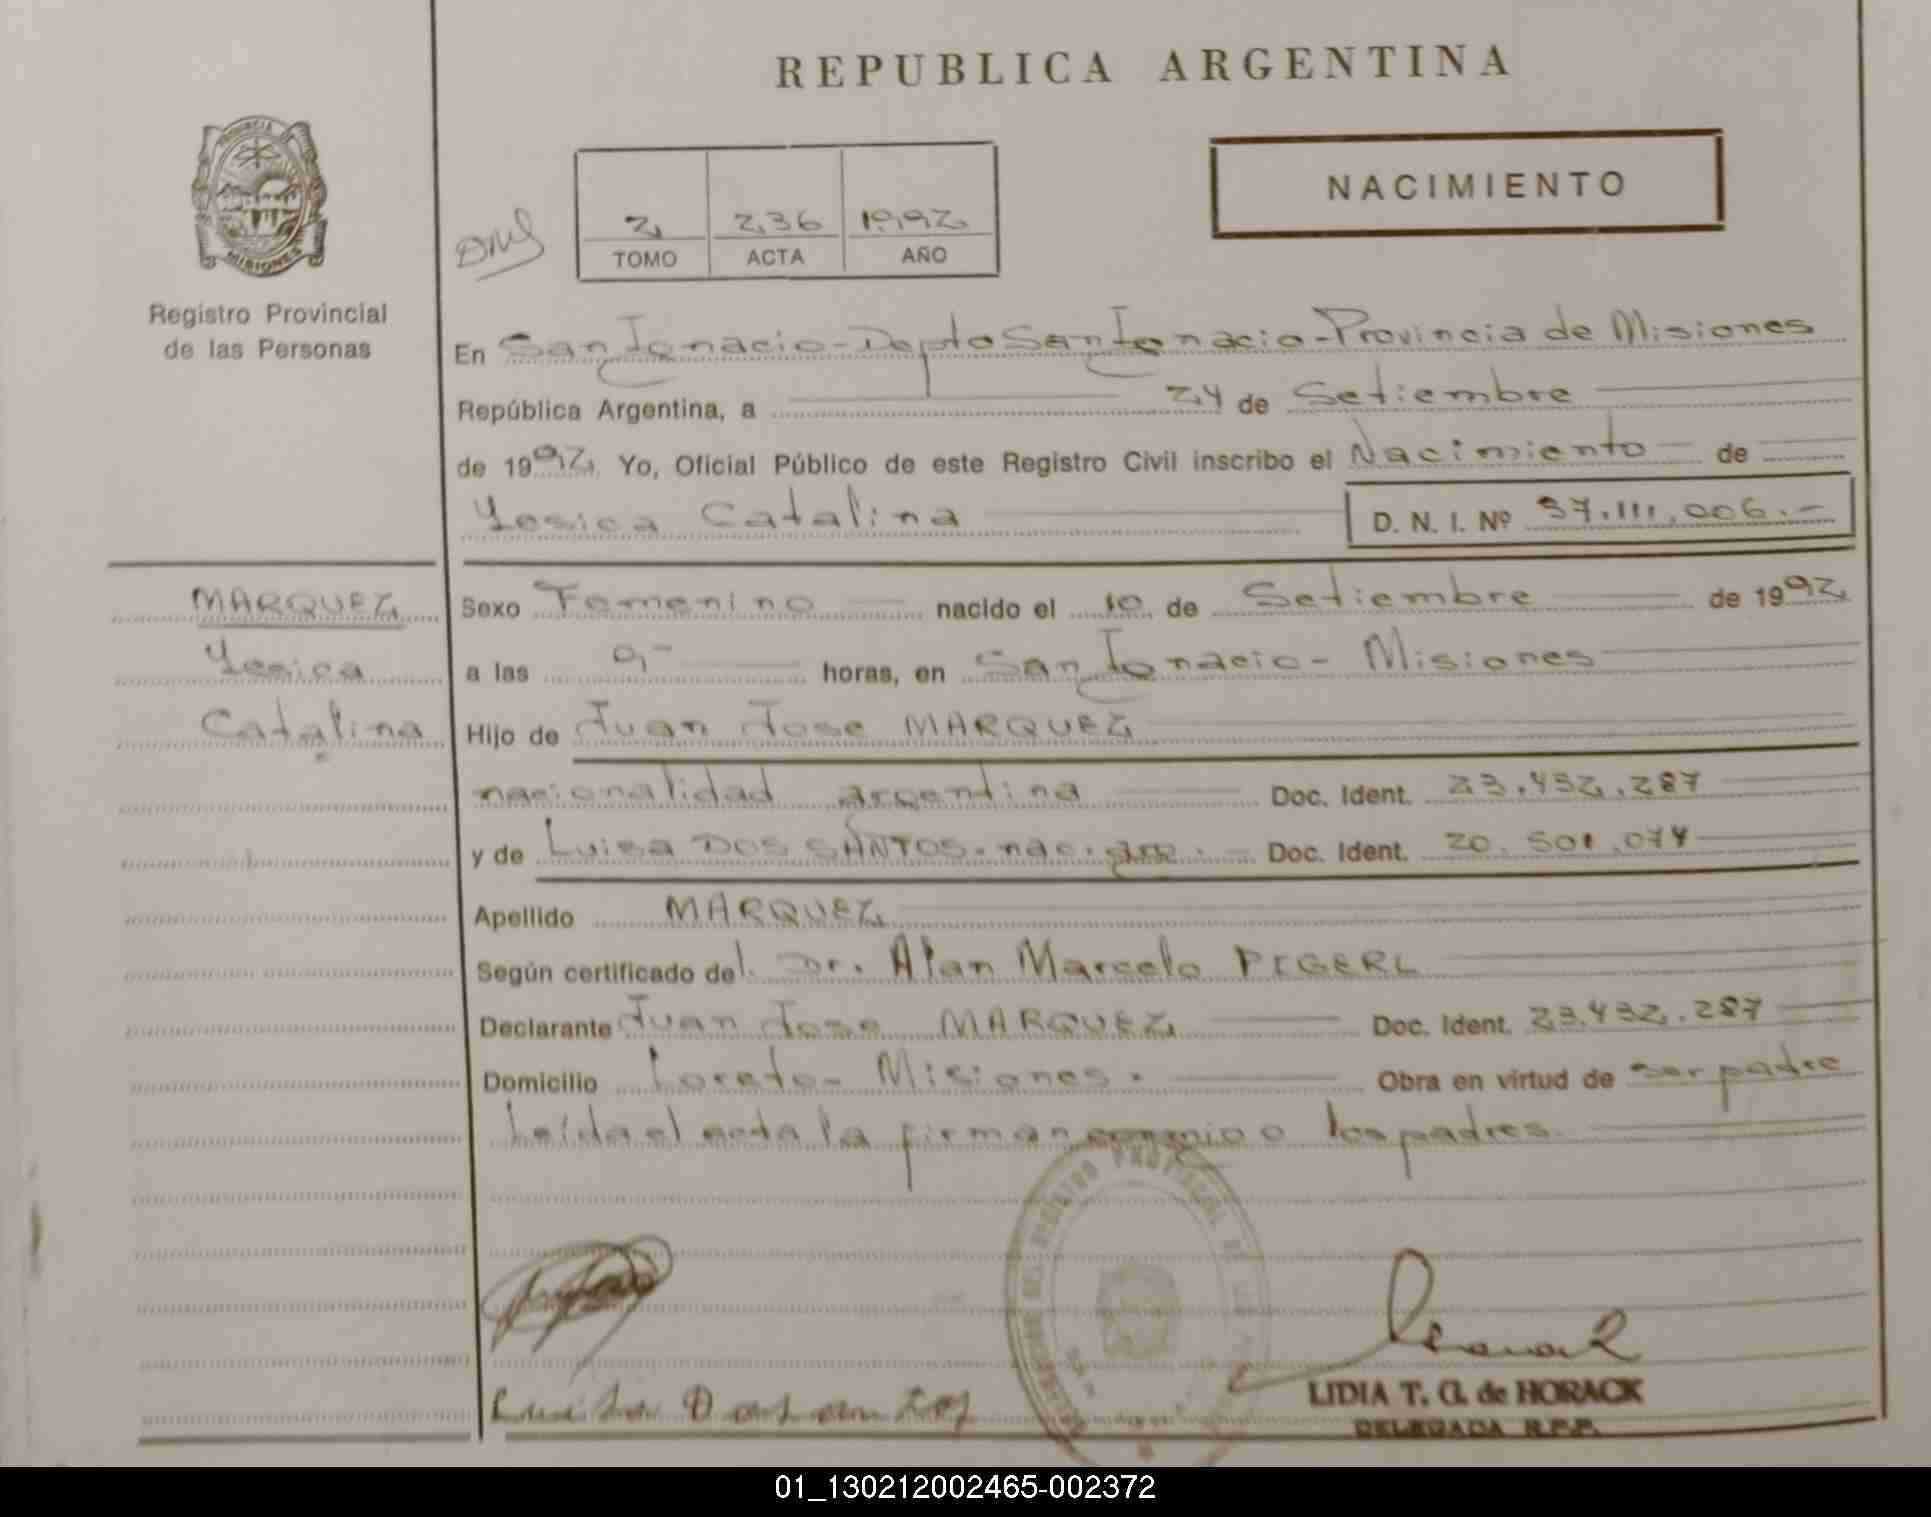 REPUBLICA ARGENTINA
PROVINCIA
MISIONES
Registro Provincial
de las Personas
2 236 1992
TOMO ACTA AÑO
NACIMIENTO
En San Ignacio - Depto San Ignacio - Provincia de Misiones
República Argentina, a 24 de Setiembre
de 1992. Yo, Oficial Público de este Registro Civil inscribo el Nacimiento de
Yesica Catalina D. N. I. Nº 37.111.006.-
MARQUEZ
Yesica
Catalina
Sexo Femenino nacido el 10 de Setiembre de 1992
a las 0,- horas, en San Ignacio - Misiones
Hijo de Juan Jose MARQUEZ
nacionalidad argentina Doc. Ident. 23.432.287
y de Luisa DOS SANTOS. nac. arg. Doc. Ident. 20.501.074
Apellido MARQUEZ
Según certificado del Dr. Alan Marcelo PEGERL
Declarante Juan Jose MARQUEZ Doc. Ident. 23.432.287
Domicilio Loreto - Misiones. Obra en virtud de ser padre
Leída el acta la firman conmigo los padres.
Luisa Dos Santos
LIDIA T. G. de HORACK
DELEGADA R.P.P.
01_130212002465-002372